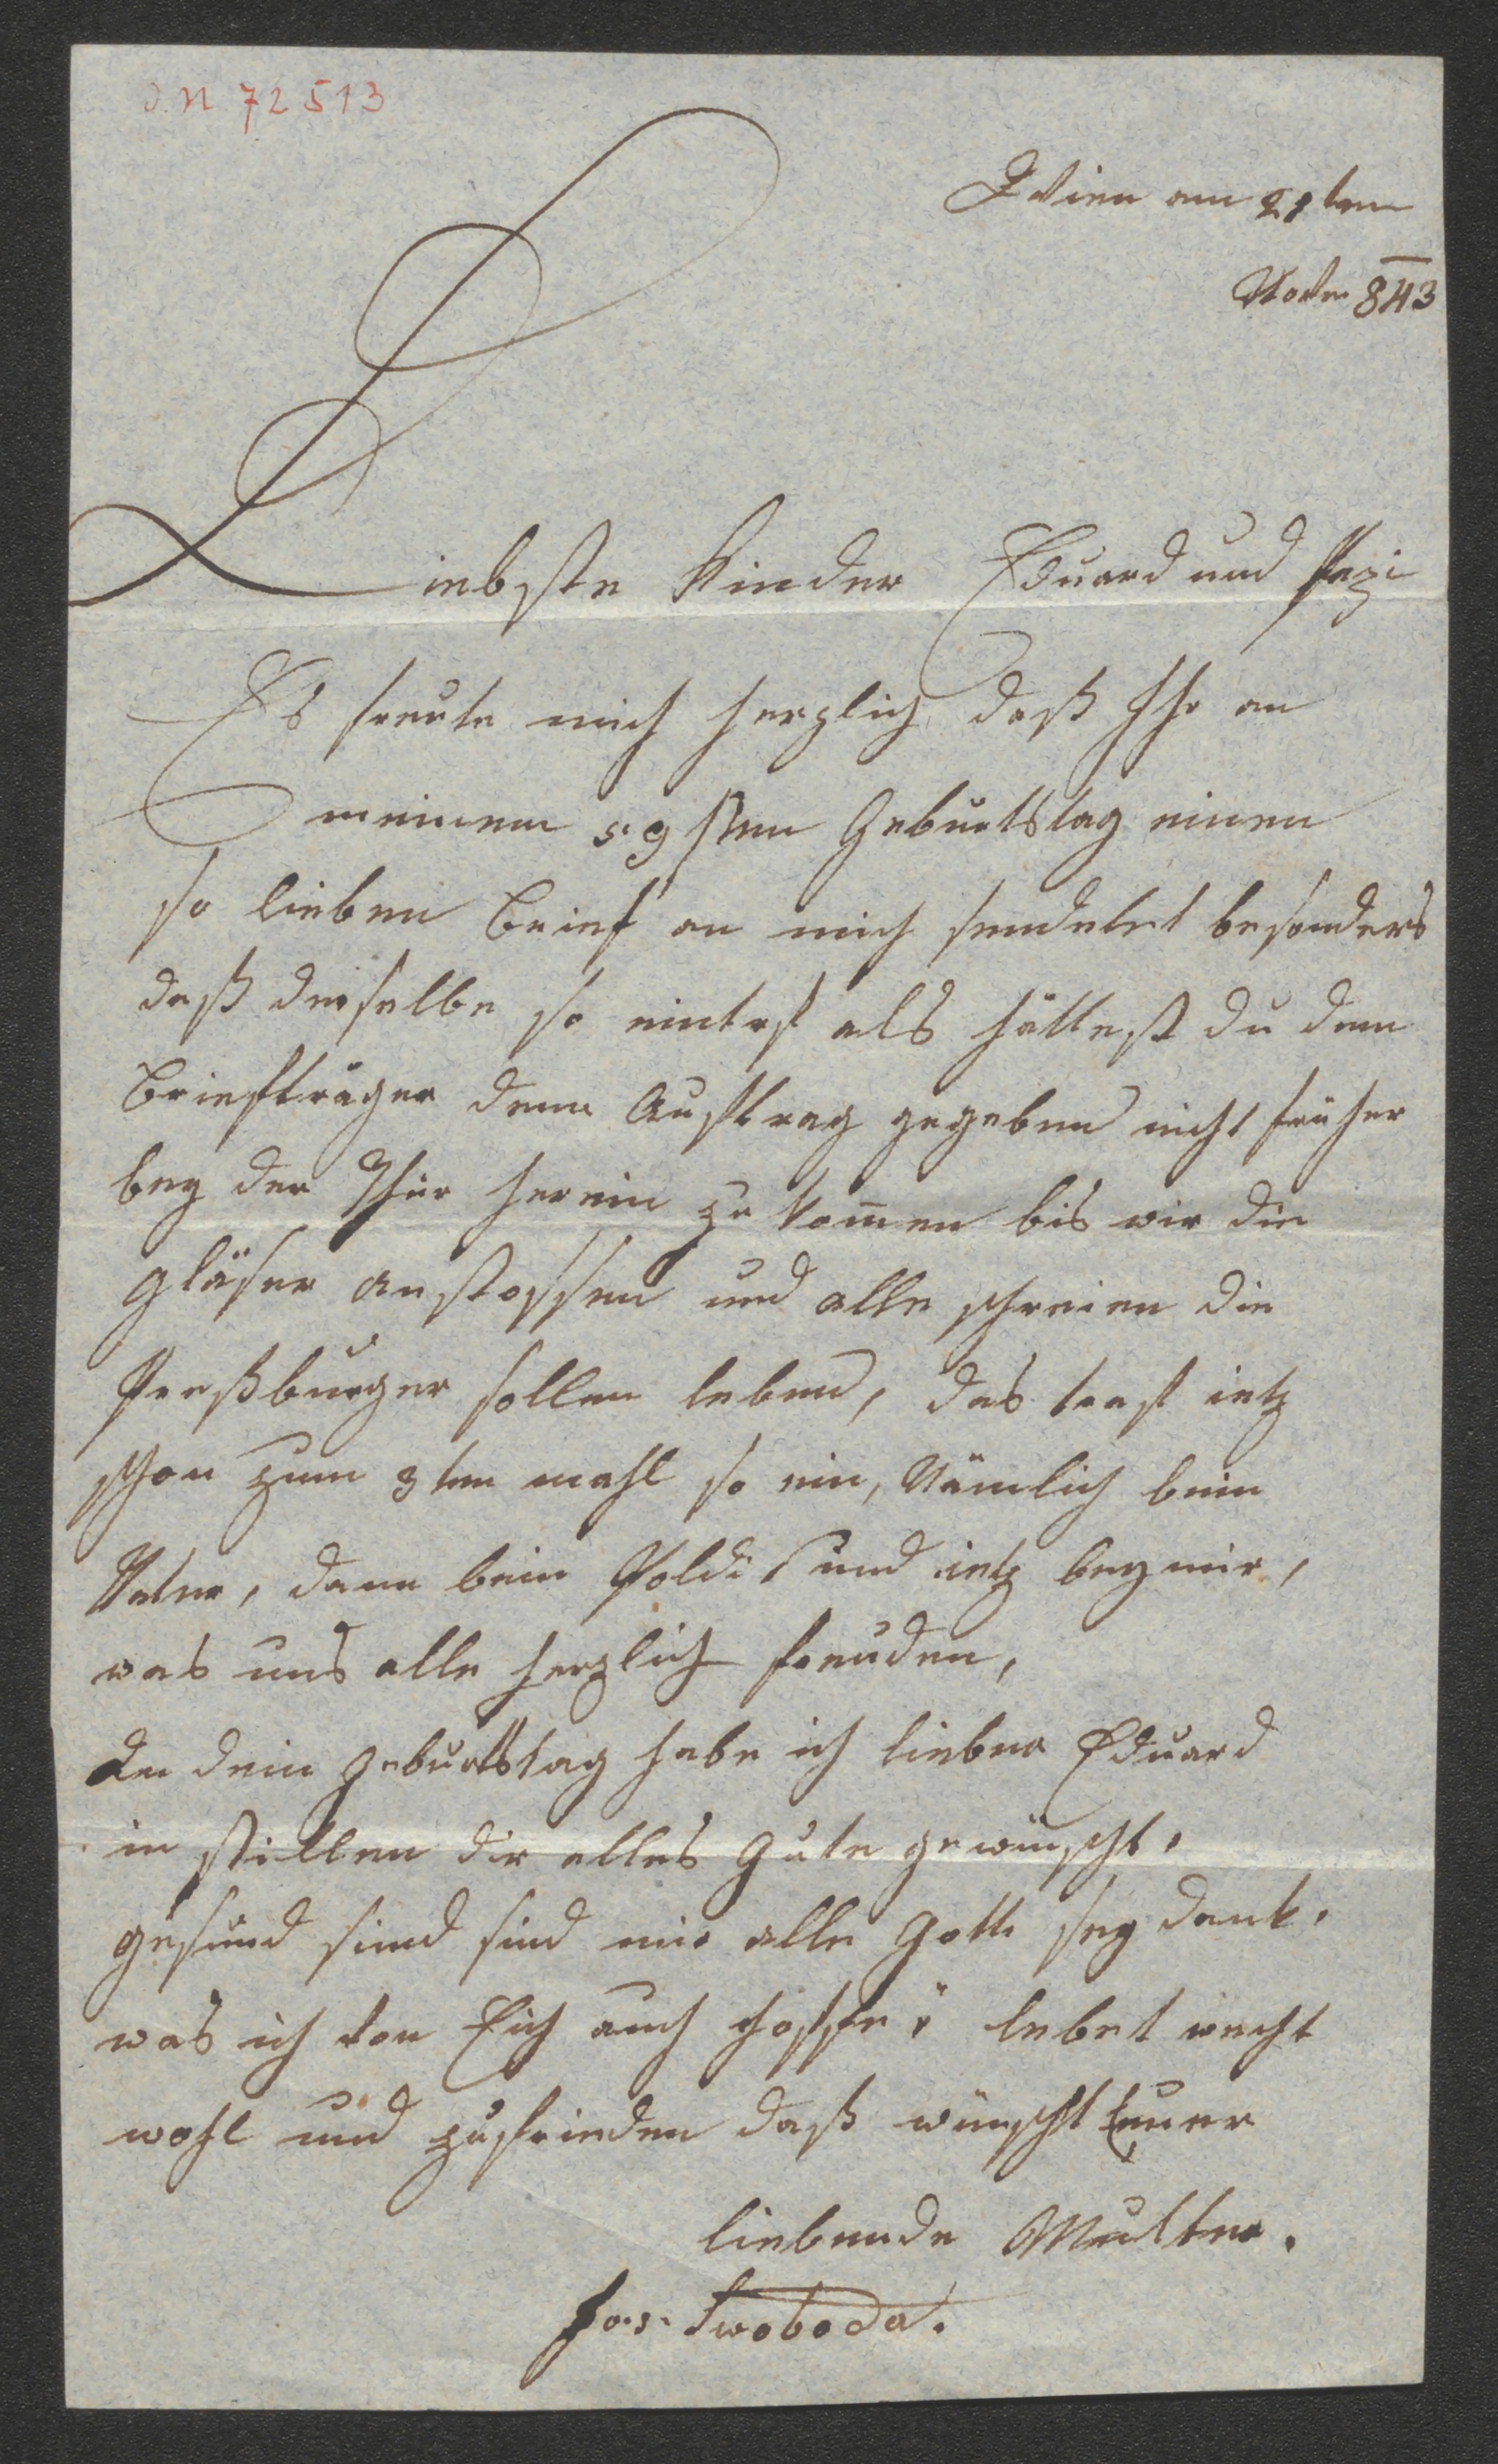 J.N 72513
Wien am 21ten
Novem 843
Liebste Kinder Eduard und Pepi
Es freute mich herzlich daß Ihr an
meinem 59sten Geburtstag einen
so lieben Brief an mich sendetet besonders
daß derselbe so eintraf als hättest du dem
Briefträger denn Auftrag gegeben nicht früher
bey der Thür herein zu kom̅en bis wir die
Gläser anstossen und alle schreien die
Preßburger sollen leben, das traf ietz
schon zum 3ten mahl so ein, Nämlich beim
Vater, dann beim Poldi und ietz bey mir,
was uns alle herzlich freuden,
An dein Geburtstag habe ich lieber Eduard
in stillen dir alles Gute gewünscht.
gesund sind sind mir alle Gott sey dank.
was ich von Eich auch hoffe, lebet recht
wohl und zufrieden daß wünscht Euer
liebende Mutter.
Jos. Swoboda.